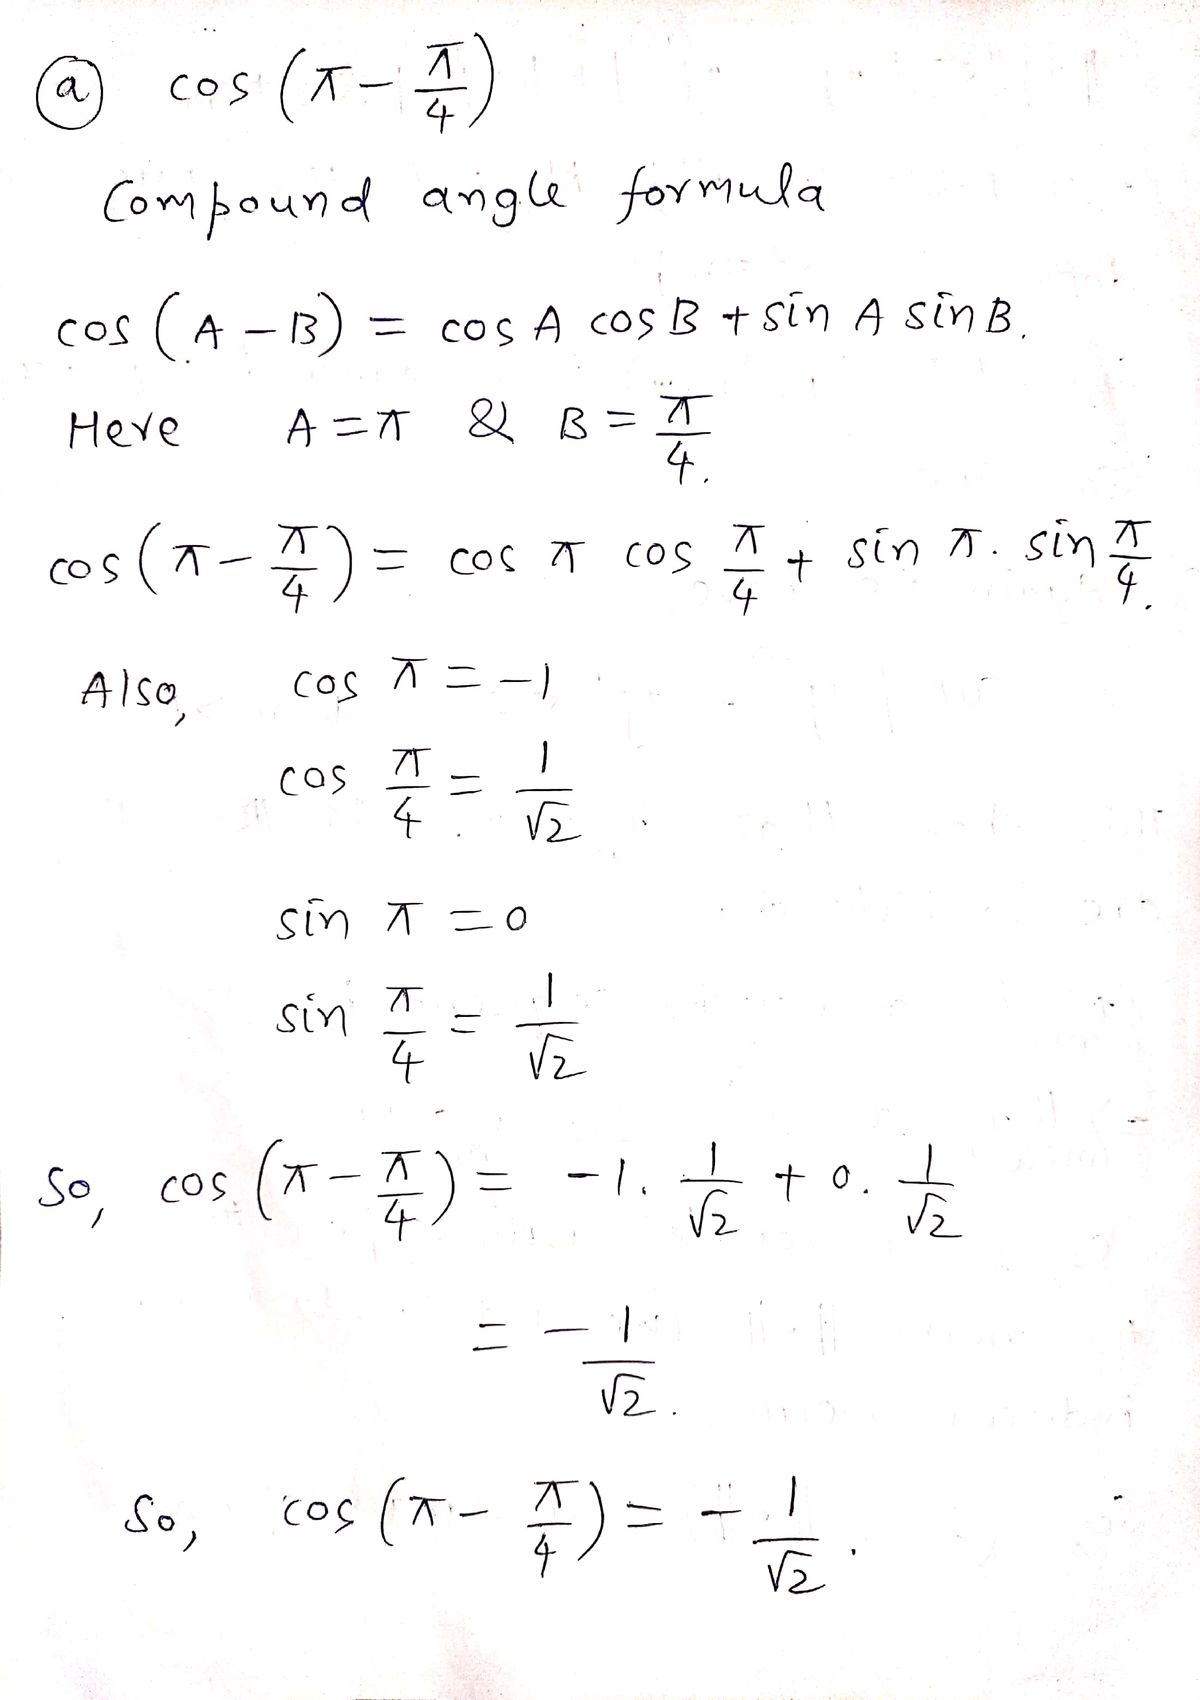 (a) cos (π - π/4)
Compound angle formula
cos (A - B) = cos A cos B + sin A sin B.
Here A = π & B = π/4.
cos (π - π/4) = cos π cos π/4 + sin π . sin π/4.
Also, cos π = -1
cos π/4 = 1/√2
sin π = 0
sin π/4 = 1/√2
So, cos (π - π/4) = -1 . 1/√2 + 0 . 1/√2
= - 1/√2 .
So, cos (π - π/4) = - 1/√2 .